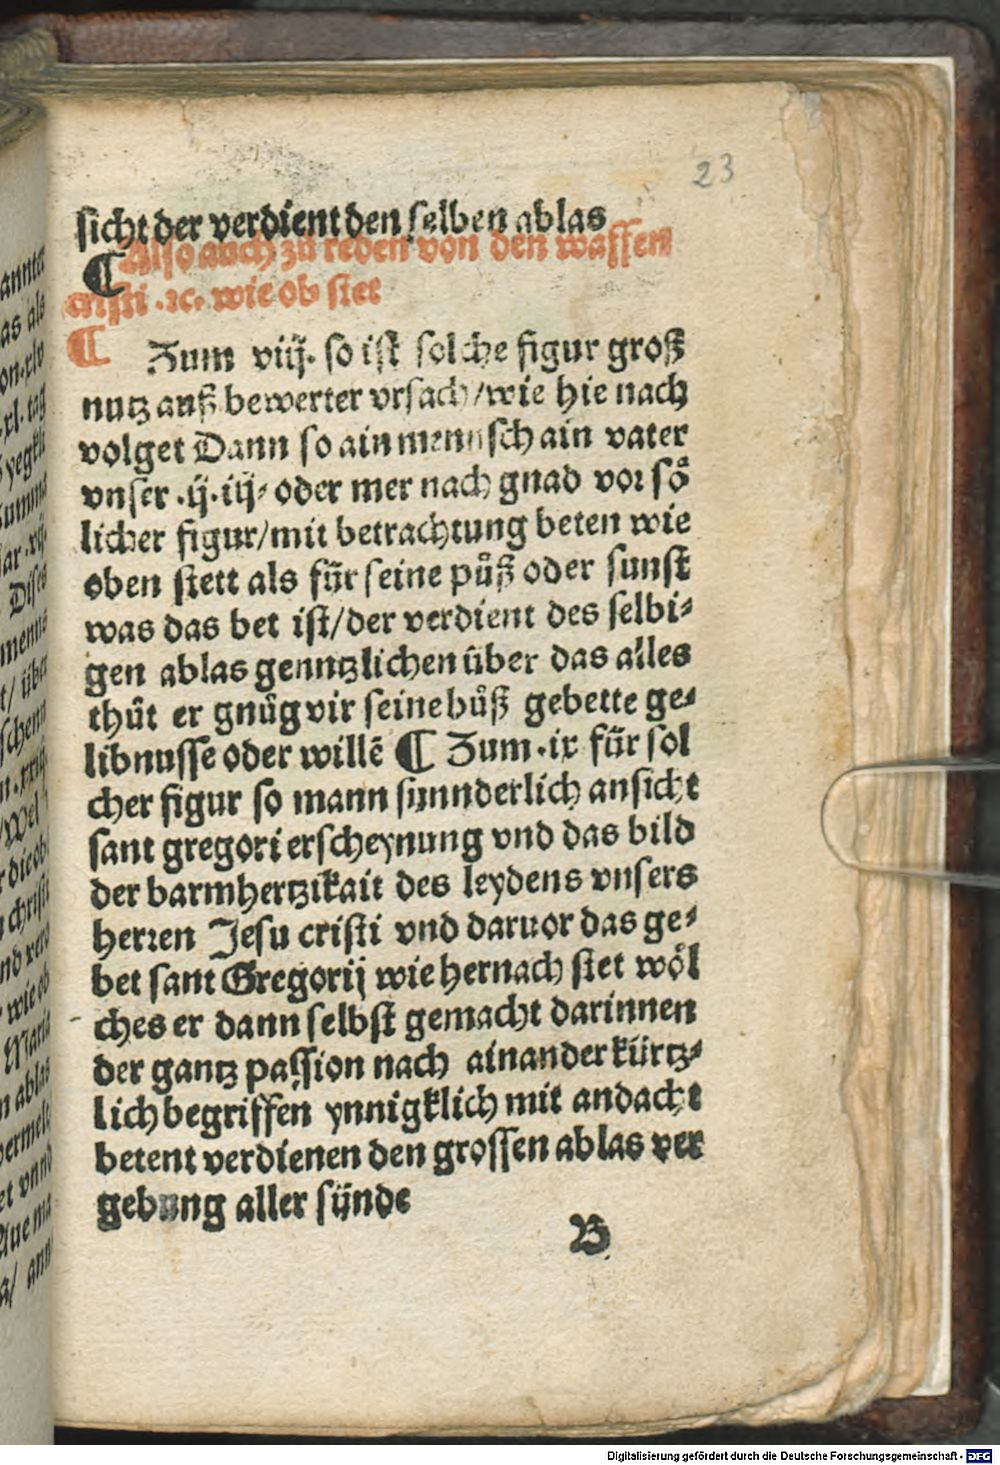 23
sicht der verdient den selben ablas
¶ Also auch zů reden von den waffen
cristi .ꝛc. wie ob stet
¶ Zum viij. so ist solche figur groß
nutz auß bewerter vrsach/wie hie nach
volget Dann so ain mennsch ain vater
vnser .ij.iij. oder mer nach gnad vor sö
licher figur/mit betrachtung beten wie
oben stett als für seine půß oder sunst
was das bet ist/der verdient des selbi⸗
gen ablas genntzlichen über das alles
thůt er gnůg vir seine bůß gebette ge⸗
libnusse oder willē ¶ Zum .ix für sol
cher figur so mann sünnderlich ansicht
sant gregori erscheynung vnd das bild
der barmhertzikait des leydens vnsers
herren Jesu cristi vnd daruor das ge⸗
bet sant Gregorij wie hernach stet wöl
ches er dann selbst gemacht darinnen
der gantz passion nach ainander kürtz⸗
lich begriffen ynnigklich mit andacht
betent verdienen den grossen ablas ver
gebung aller sünde
B
Digitalisierung gefördert durch die Deutsche Forschungsgemeinschaft - DFG